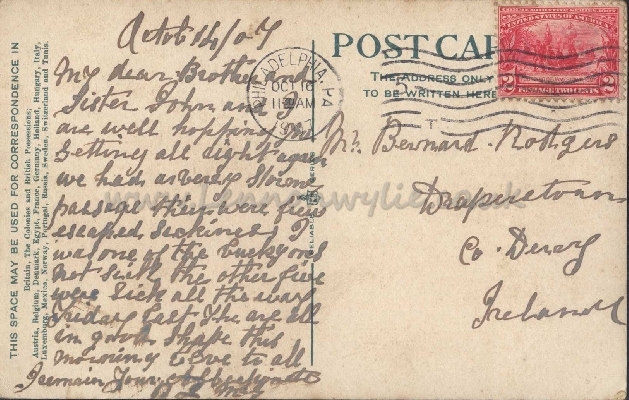 Octob 14/07
My dear Brother and
Sister John and I
are well hopping your
Getting all right again
we had a very Stormy
passage their were few
escaped seckness I
was one of the luckey ones
not sick the other five
were sick all the way
Friday last We are all
in good shape this
morning Love to all
I remain Your affectionate
THIS SPACE MAY BE USED FOR CORRESPONDENCE IN
Britain, The Colonies and British Possessions;
Austria, Belgium, Denmark, Egypt, France, Germany, Holland, Hungary, Italy,
Luxemburg, Mexico, Norway, Portugal, Russia, Sweden, Switzerland and Tunis.
POST CAR
THE ADDRESS ONLY
TO BE WRITTEN HERE
PHILADELPHIA, PA
OCT 16
11 AM
UNITED STATES OF AMERICA
2 2
POSTAGE TWO CENTS
Mr. Bernard Rodgers
Draperstown
Co. Derry
Ireland